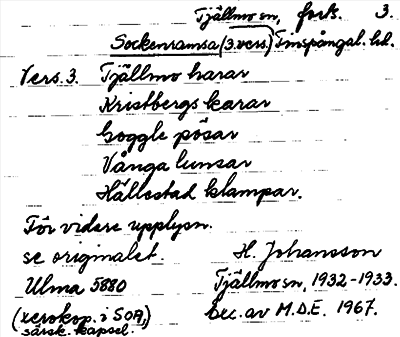 Tjällmo sn, forts. 3.
Sockenramsa (3. vers.) Finspångal. hd.
Vers. 3. Tjällmo harar
Kristbergs karar
Goggle pösar
Vånga lunsar
Hällestad klampar.
För vidare upplysn.
se originalet. H. Johansson
Ulma 5880 Tjällmo sn, 1932-1933.
(xerokop. i SOA,) bec. av M.D.E. 1967.
särsk. kapsel.